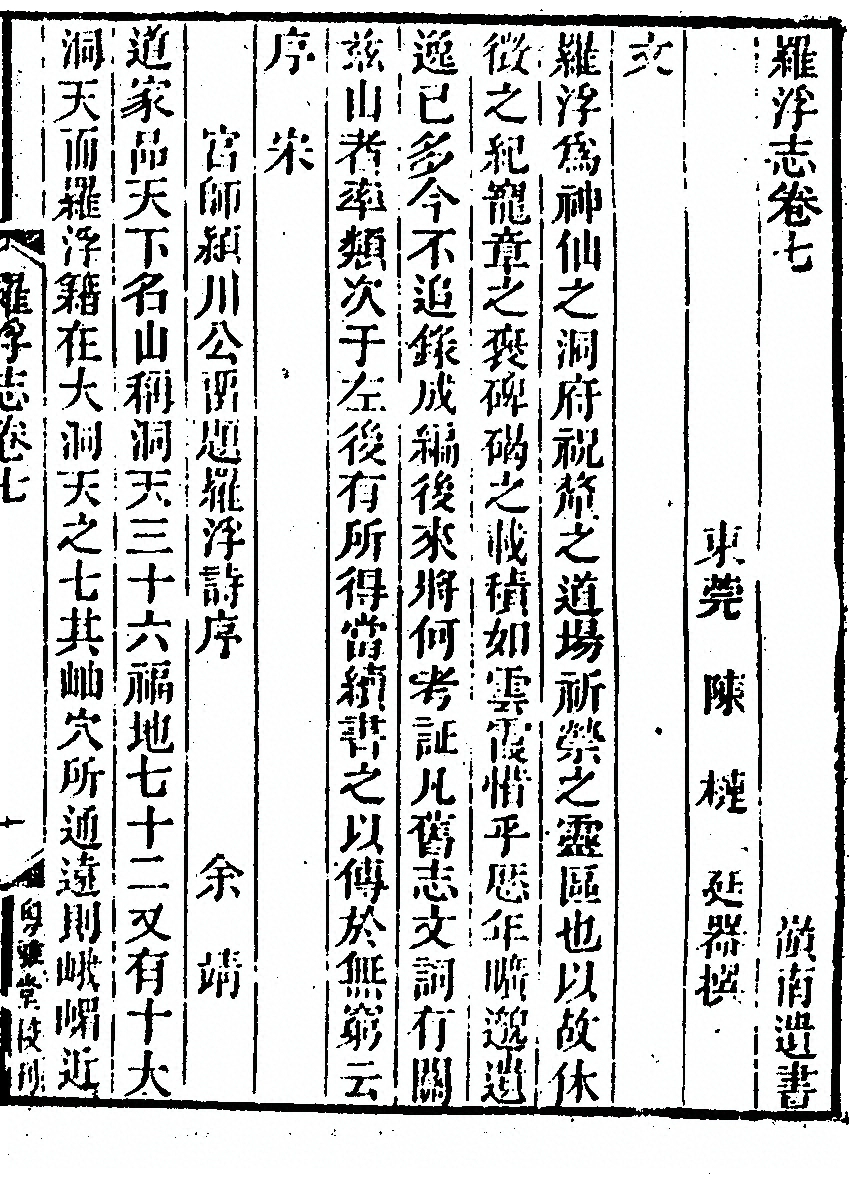 羅浮志卷七　嶺南遺書
東莞　陳　槤　廷器撰
文
羅浮爲神仙之洞府祝釐之道場祈禜之靈區也以故休
徵之紀寵章之褒碑碣之載積如雲霞惜乎歷年曠邈遺
逸已多今不追錄成編後來將何考証凡舊志文詞有關
兹山者率類次于左後有所得當續書之以傳於無窮云
序　宋
宫師潁川公留題羅浮詩序　余　靖
道家品天下名山稱洞天三十六福地七十二又有十大
洞天而羅浮籍在大洞天之七其岫穴所通遠則峨嵋近
羅浮志卷七
一
粤雅堂校刊